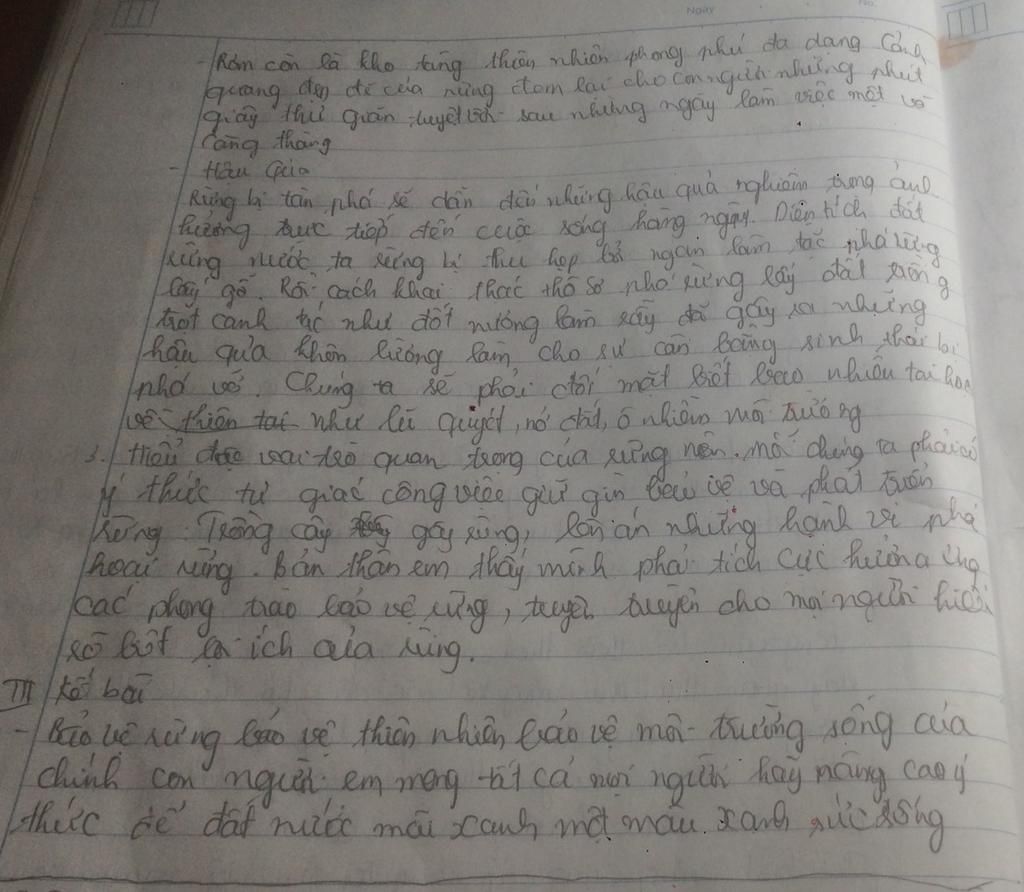 Ngày No.
- Rừn còn là kho tàng thiên nhiên phong phú đa dạng Cảnh
quang đẹp đẽ của rừng đem lại cho con người những phút
giây thư giãn tuyệt vời sau những ngày làm việc mệt và
Căng thẳng
- Hậu Qủa
Rừng bị tàn phá sẽ dẫn đến những hậu quả nghiêm trọng ảnh
hưởng trực tiếp đến cuộc sống hàng ngày. Diện tích đất
rừng nước ta rừng bị thu hẹp bở ngạn lâm tặc phá rừng
lấy gỗ. Rồi cách khai thác thô sơ phá rừng lấy đất trồng
trọt canh tác như đốt nướng làm rẫy đã gây ra những
hậu qủa khôn lường làm cho sự cân bằng sinh thái bị
phá vỡ. Chúng ta sẽ phải đối mặt biết bao nhiêu tai hoạ
về thiên tai như lũ quyét, nở đất, ô nhiễm môi trường
3. Hiểu được vai trò quan trọng của rừng nên. mỗi chúng ta phải có
ý thức tự giác công việc giữ gìn bảo vệ và phát triển
Rừng. Trồng cây gây rừng, lên án những hành vi phá
hoại rừng. Bản thân em thấy mình phải tích cực hưởng ứng
các phong trào bảo vệ rừng, tuyên truyền cho mọi người hiểu
rõ biết lợi ích của rừng.
III Kết bài
- Bảo vệ rừng bảo vệ thiên nhiên bảo vệ môi trường sống của
chính con người. em mong tất cả mọi người hãy nâng cao ý
thức để đất nước mãi xanh, một màu xanh sức sống